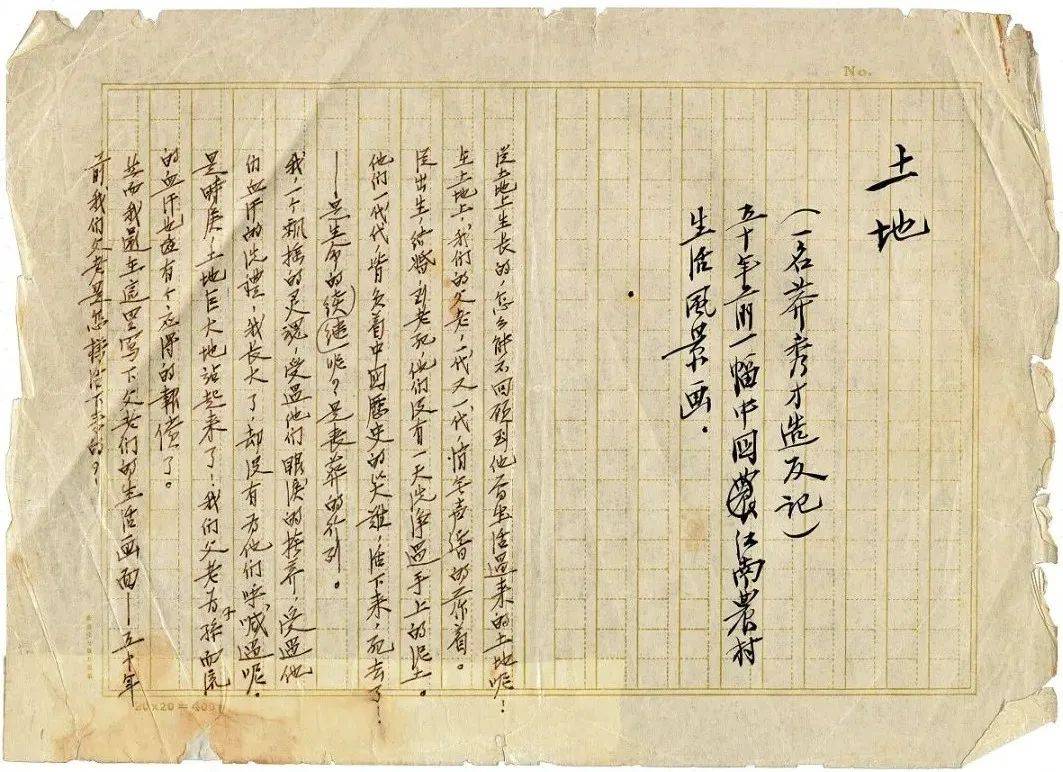 No.
土地
(一名莽秀才造反记)
五十年前一幅中国農江南農村
生活風景画.
從土地上生长的,怎么能不回顾到他所生活過来的土地呢!
在土地上,我们的父老,一代又一代,悄無声音的工作着。
從出生,结婚到老死,他们没有一天洗净過手上的泥土。
他们一代代,背负着中国歷史的災难,活下来,死去了!
——是生命的续继呢?是丧葬的行列。
我,一个飘摇的灵魂,受過他们眼淚的撫养,受過他
们血汗的洗禮,我长大了,却没有为他们呼喊過呢.
是時候,土地巨大地站起来了!我们父老为子孫而流
的血汗也该有个应得的報償了。
然而我還在這里写下父老们的生活画面——五十年
前我们父老是怎样活下来的?
20×20=400